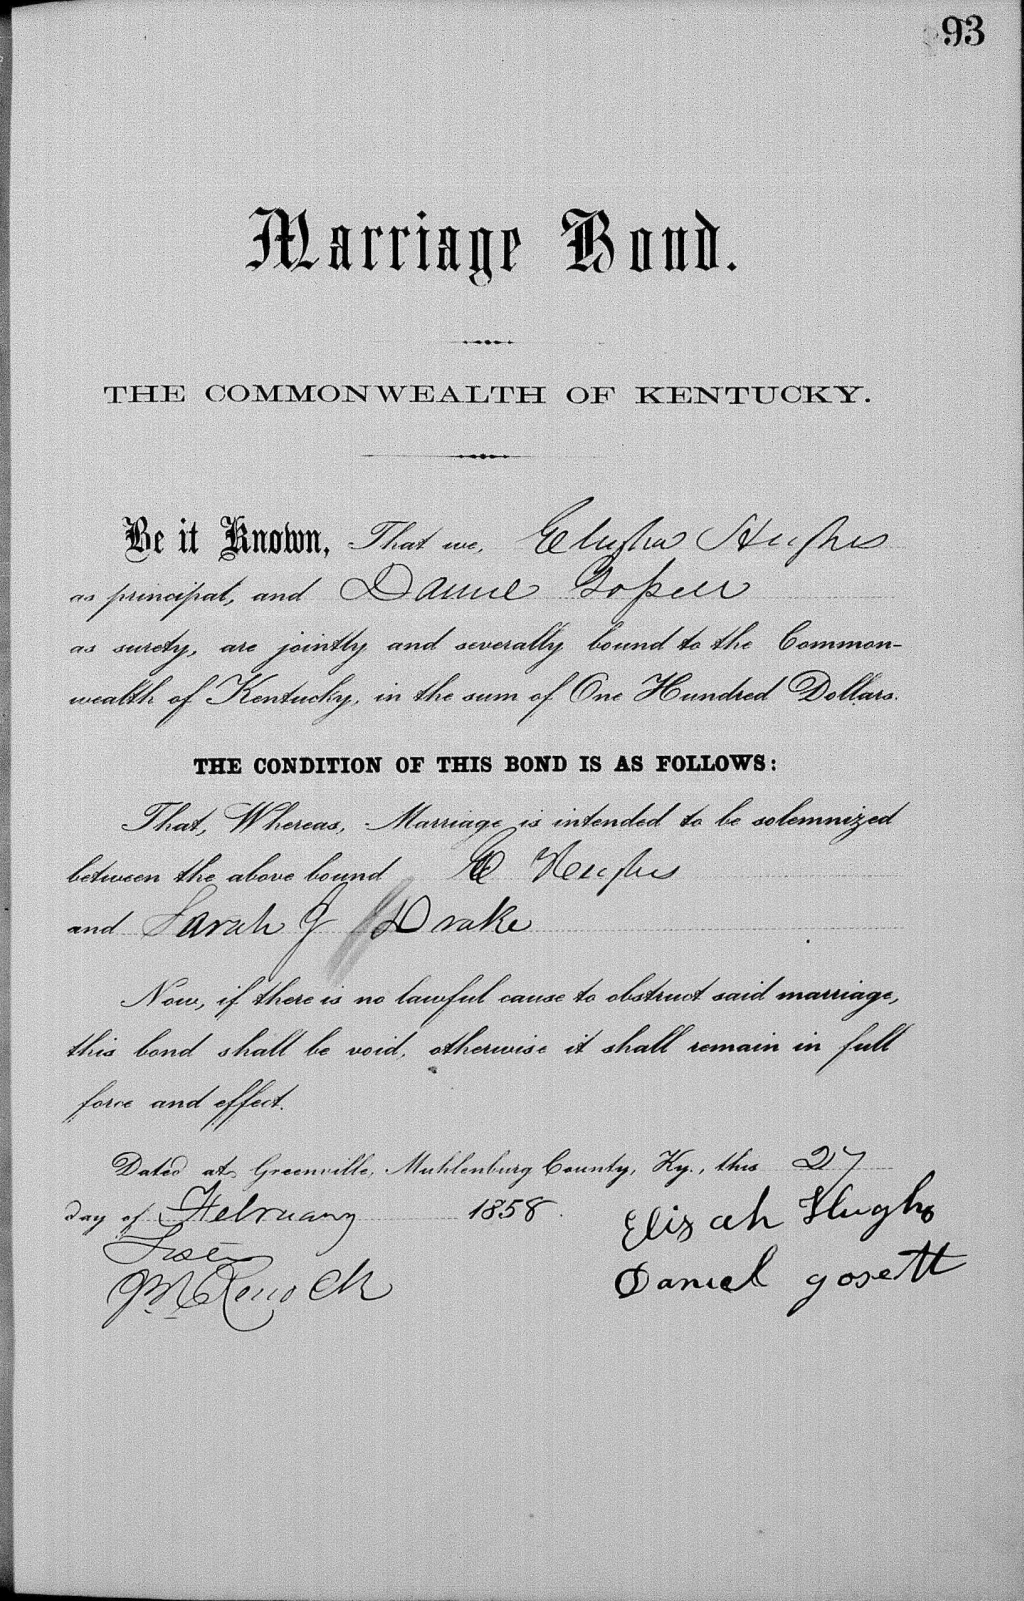 93
Marriage Bond.
THE COMMONWEALTH OF KENTUCKY.
Be it Known, That we, Elijha Hughs
as principal, and Daniel Gossett
as surety, are jointly and severally bound to the Common-
wealth of Kentucky, in the sum of One Hundred Dollars.
THE CONDITION OF THIS BOND IS AS FOLLOWS:
That, Whereas, Marriage is intended to be solemnized
between the above bound E Hughs
and Sarah J Drake
Now, if there is no lawful cause to obstruct said marriage,
this bond shall be void, otherwise it shall remain in full
force and effect.
Dated at Greenville, Muhlenburg County, Ky., this 27
day of February 1858. Elizah Hughs
Daniel gosett